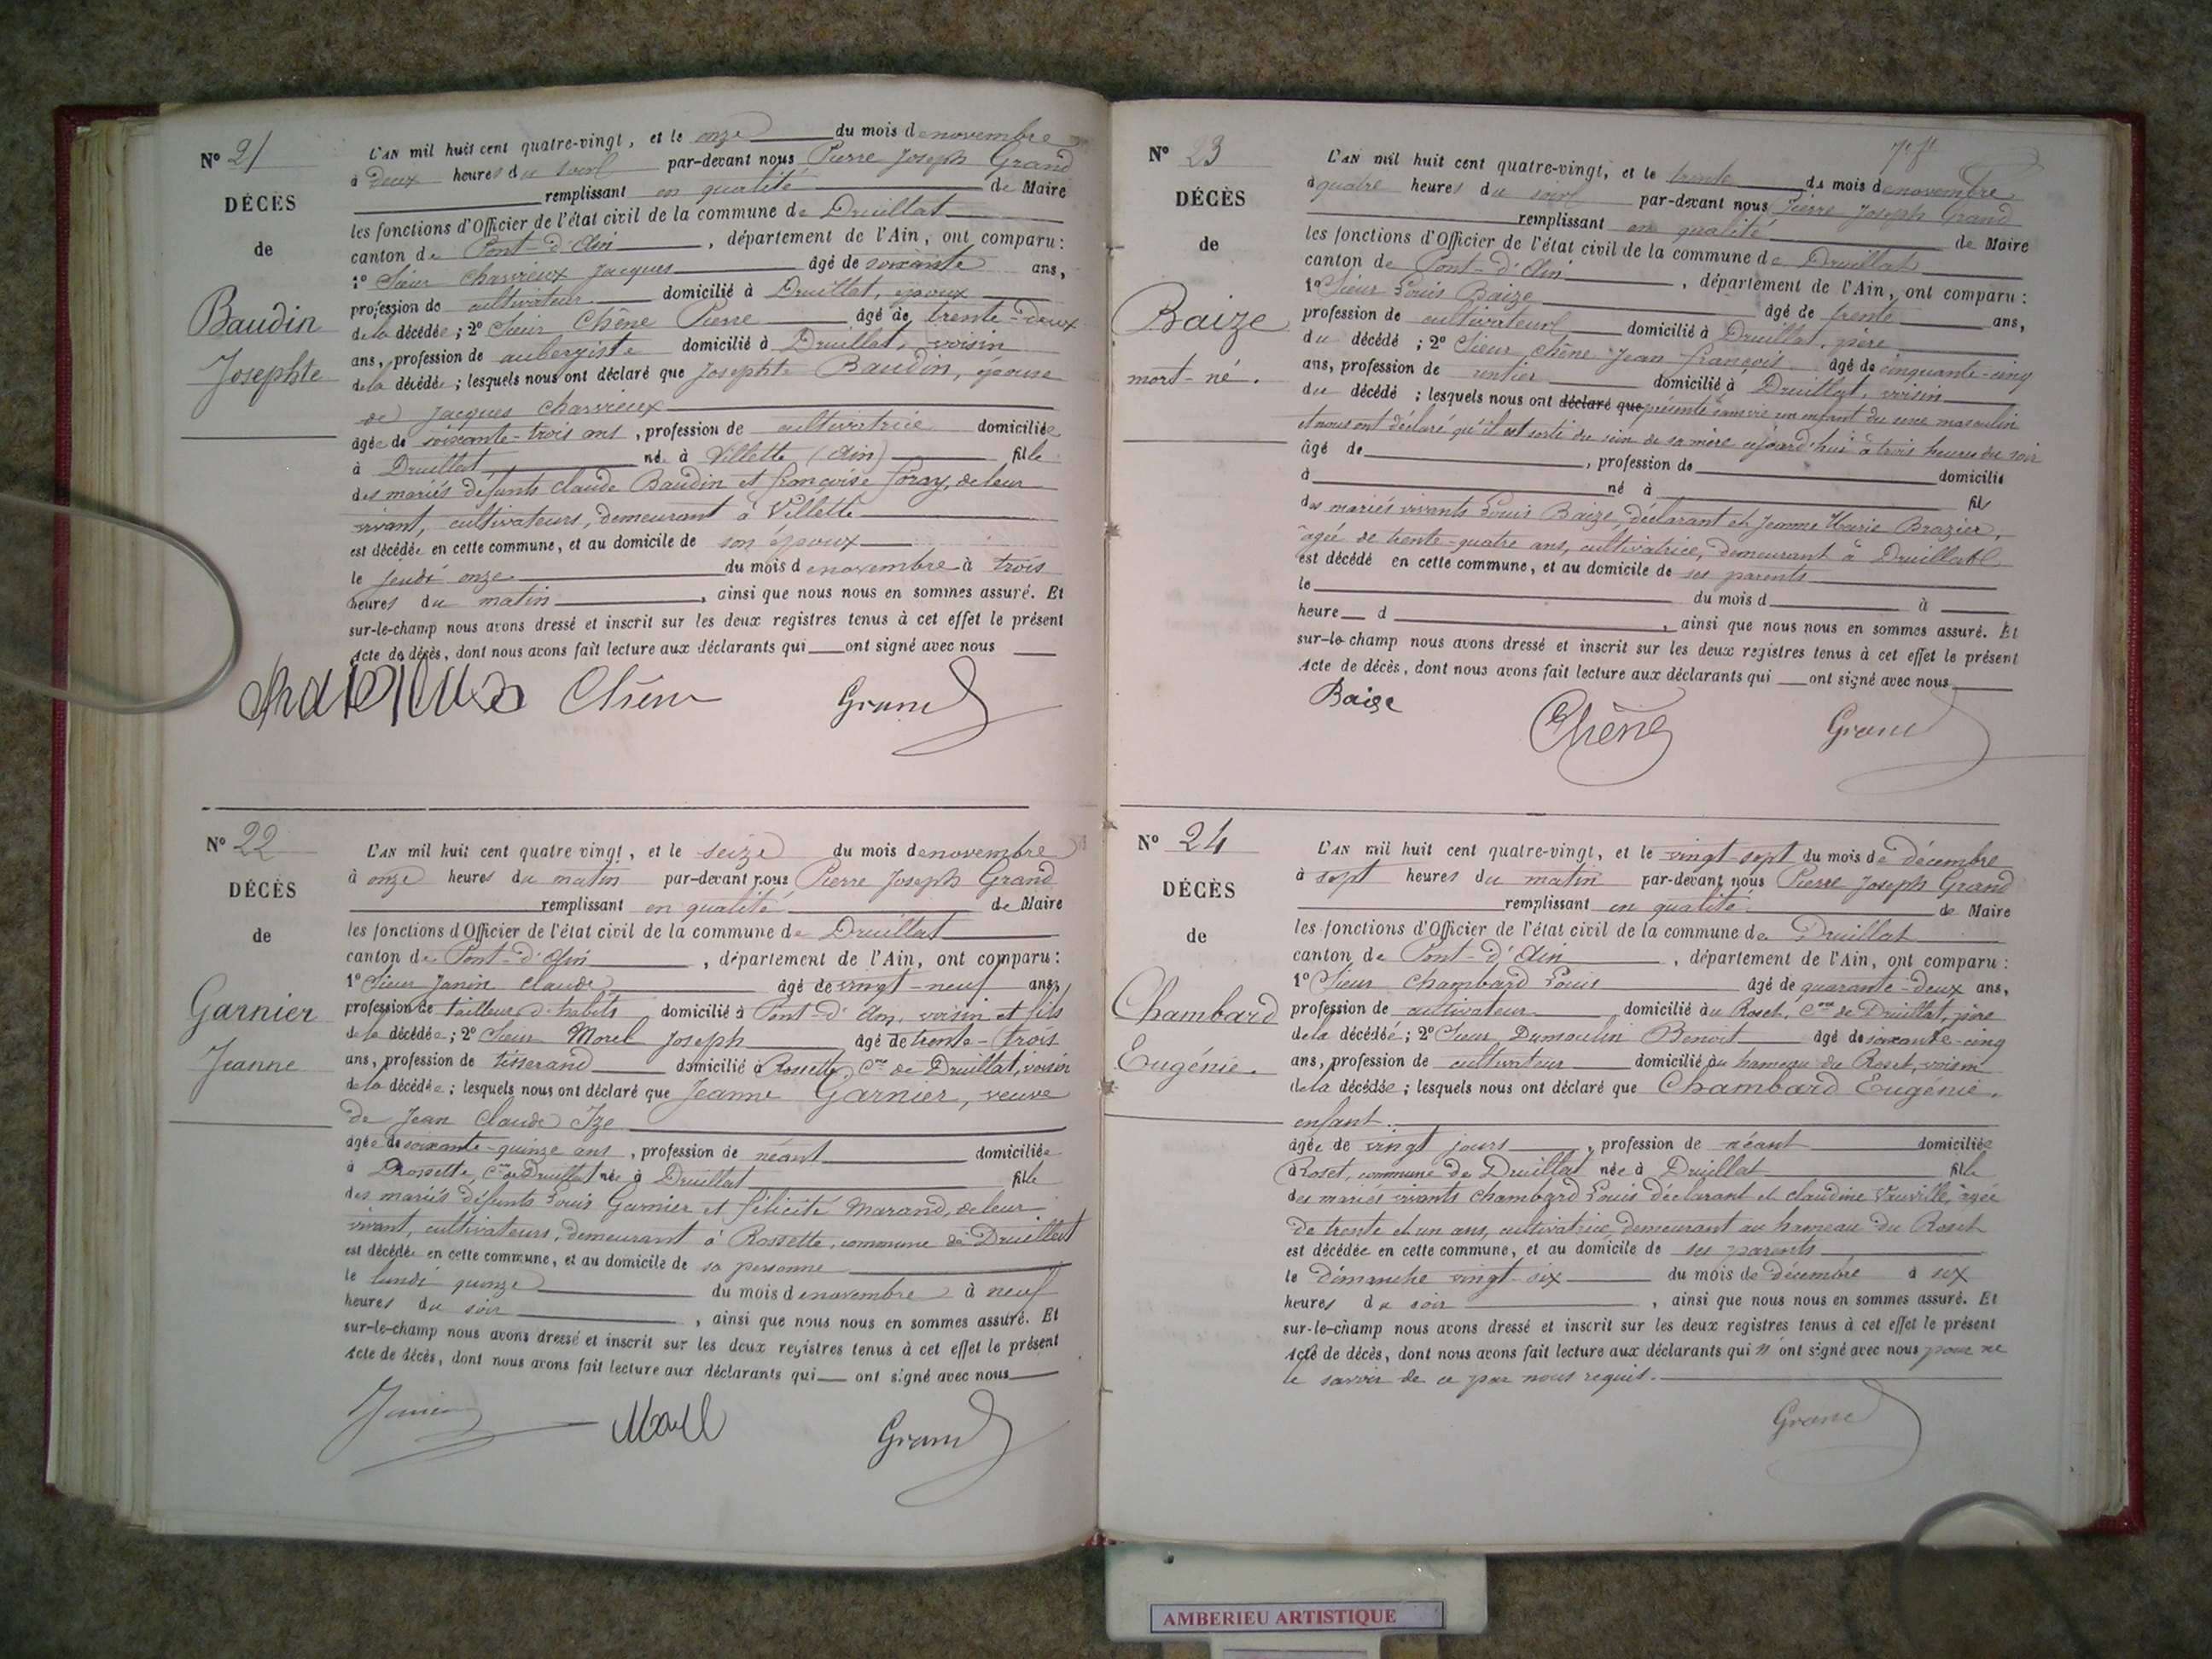 N° 21
DÉCÈS
de
Baudin
Josephte
L'AN mil huit cent quatre-vingt, et le onze du mois de novembre
à deux heures du soir par-devant nous Pierre Joseph Grand
remplissant en qualité de Maire
les fonctions d'Officier de l'état civil de la commune de Druillat
canton de Pont-d'Ain, département de l'Ain, ont comparu :
1° Sieur Charvieux Jacques âgé de soixante ans,
profession de cultivateur domicilié à Druillat, époux
de la décédée ; 2° Sieur Chêne Pierre âgé de trente-deux
ans, profession de aubergiste domicilié à Druillat, voisin
de la décédée ; lesquels nous ont déclaré que Josephte Baudin, épouse
de Jacques Charvieux
âgée de soixante-trois ans, profession de cultivatrice domiciliée
à Druillat née à Villette (Ain) fille
des mariés défunts Claude Baudin et Françoise Foray, de leur
vivant, cultivateurs, demeurant à Villette
est décédée en cette commune, et au domicile de son époux
le jeudi onze du mois de novembre à trois
heures du matin, ainsi que nous nous en sommes assuré. Et
sur-le-champ nous avons dressé et inscrit sur les deux registres tenus à cet effet le présent
Acte de décès, dont nous avons fait lecture aux déclarants qui ont signé avec nous
Chêne Grand
N° 22
DÉCÈS
de
Garnier
Jeanne
L'AN mil huit cent quatre vingt, et le seize du mois de novembre
à onze heures du matin par-devant nous Pierre Joseph Grand
remplissant en qualité de Maire
les fonctions d'Officier de l'état civil de la commune de Druillat
canton de Pont-d'Ain, département de l'Ain, ont comparu :
1° Sieur Janin Claude âgé de vingt-neuf ans,
profession de tailleur d'habits domicilié à Pont-d'Ain, voisin et fils
de la décédée ; 2° Sieur Morel Joseph âgé de trente-trois
ans, profession de tisserand domicilié à Rossette, Cne de Druillat, voisin
de la décédée ; lesquels nous ont déclaré que Jeanne Garnier, veuve
de Jean Claude Ize
âgée de soixante-quinze ans, profession de néant domiciliée
à Rossette, Cne de Druillat née à Druillat fille
des mariés défunts Louis Garnier et Félicité Marand, de leur
vivant, cultivateurs, demeurant à Rossette, commune de Druillat
est décédée en cette commune, et au domicile de sa personne
le lundi quinze du mois de novembre à neuf
heures du soir, ainsi que nous nous en sommes assuré. Et
sur-le-champ nous avons dressé et inscrit sur les deux registres tenus à cet effet le présent
Acte de décès, dont nous avons fait lecture aux déclarants qui ont signé avec nous
Janin Morel Grand
N° 23
DÉCÈS
de
Baize
mort-né.
L'AN mil huit cent quatre-vingt, et le trente du mois de novembre
à quatre heures du soir par-devant nous Pierre Joseph Grand
remplissant en qualité de Maire
les fonctions d'Officier de l'état civil de la commune de Druillat
canton de Pont-d'Ain, département de l'Ain, ont comparu :
1° Sieur Louis Baize âgé de trente ans,
profession de cultivateur domicilié à Druillat, père
du décédé ; 2° Sieur Chêne Jean François âgé de cinquante-cinq
ans, profession de rentier domicilié à Druillat, voisin
du décédé ; lesquels nous ont déclaré que présenté sans vie un enfant du sexe masculin
et nous ont déclaré qu'il est sorti du sein de sa mère aujourd'hui à trois heures du soir
âgé de , profession de domicilié
à né à fils
des mariés vivants Louis Baize, déclarant et Jeanne Marie Brazier,
âgée de trente-quatre ans, cultivatrice, demeurant à Druillat
est décédé en cette commune, et au domicile de ses parents
le du mois d à
heure d , ainsi que nous nous en sommes assuré. Et
sur-le-champ nous avons dressé et inscrit sur les deux registres tenus à cet effet le présent
Acte de décès, dont nous avons fait lecture aux déclarants qui ont signé avec nous
Baize Chêne Grand
N° 24
DÉCÈS
de
Chambard
Eugénie.
L'AN mil huit cent quatre-vingt, et le vingt-sept du mois de décembre
à sept heures du matin par-devant nous Pierre Joseph Grand
remplissant en qualité de Maire
les fonctions d'Officier de l'état civil de la commune de Druillat
canton de Pont-d'Ain, département de l'Ain, ont comparu :
1° Sieur Chambard Louis âgé de quarante-deux ans,
profession de cultivateur domicilié au Roset, Cne de Druillat, père
de la décédée ; 2° Sieur Dumoulin Benoit âgé de soixante-cinq
ans, profession de cultivateur domicilié au hameau du Roset, voisin
de la décédée ; lesquels nous ont déclaré que Chambard Eugénie,
enfant.
âgée de vingt jours, profession de néant domiciliée
à Roset, commune de Druillat née à Druillat fille
des mariés vivants Chambard Louis déclarant et Claudine Vauville, âgée
de trente et un ans, cultivatrice, demeurant au hameau du Roset
est décédée en cette commune, et au domicile de ses parents
le dimanche vingt-six du mois de décembre à six
heures du soir, ainsi que nous nous en sommes assuré. Et
sur-le-champ nous avons dressé et inscrit sur les deux registres tenus à cet effet le présent
Acte de décès, dont nous avons fait lecture aux déclarants qui n'ont signé avec nous pour ne
le savoir de ce par nous requis.
Grand
AMBERIEU ARTISTIQUE